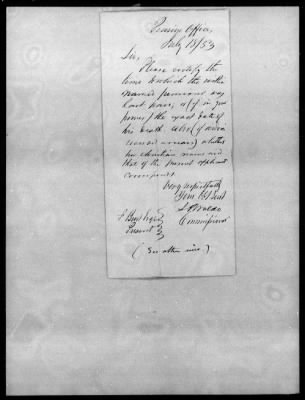 Pension Office,
July 18/53
Sir,
Please certify the
time to which the within
named pensioner was
last paid, & if in your
power, the exact date of
his death. Also (if widow
) whether
her christian name and
that of the present applicant
correspond.
Very respectfully
Your Obt Servt
L P Waldo
Commissioner
F Burt Esqr
Present
(See other side.)